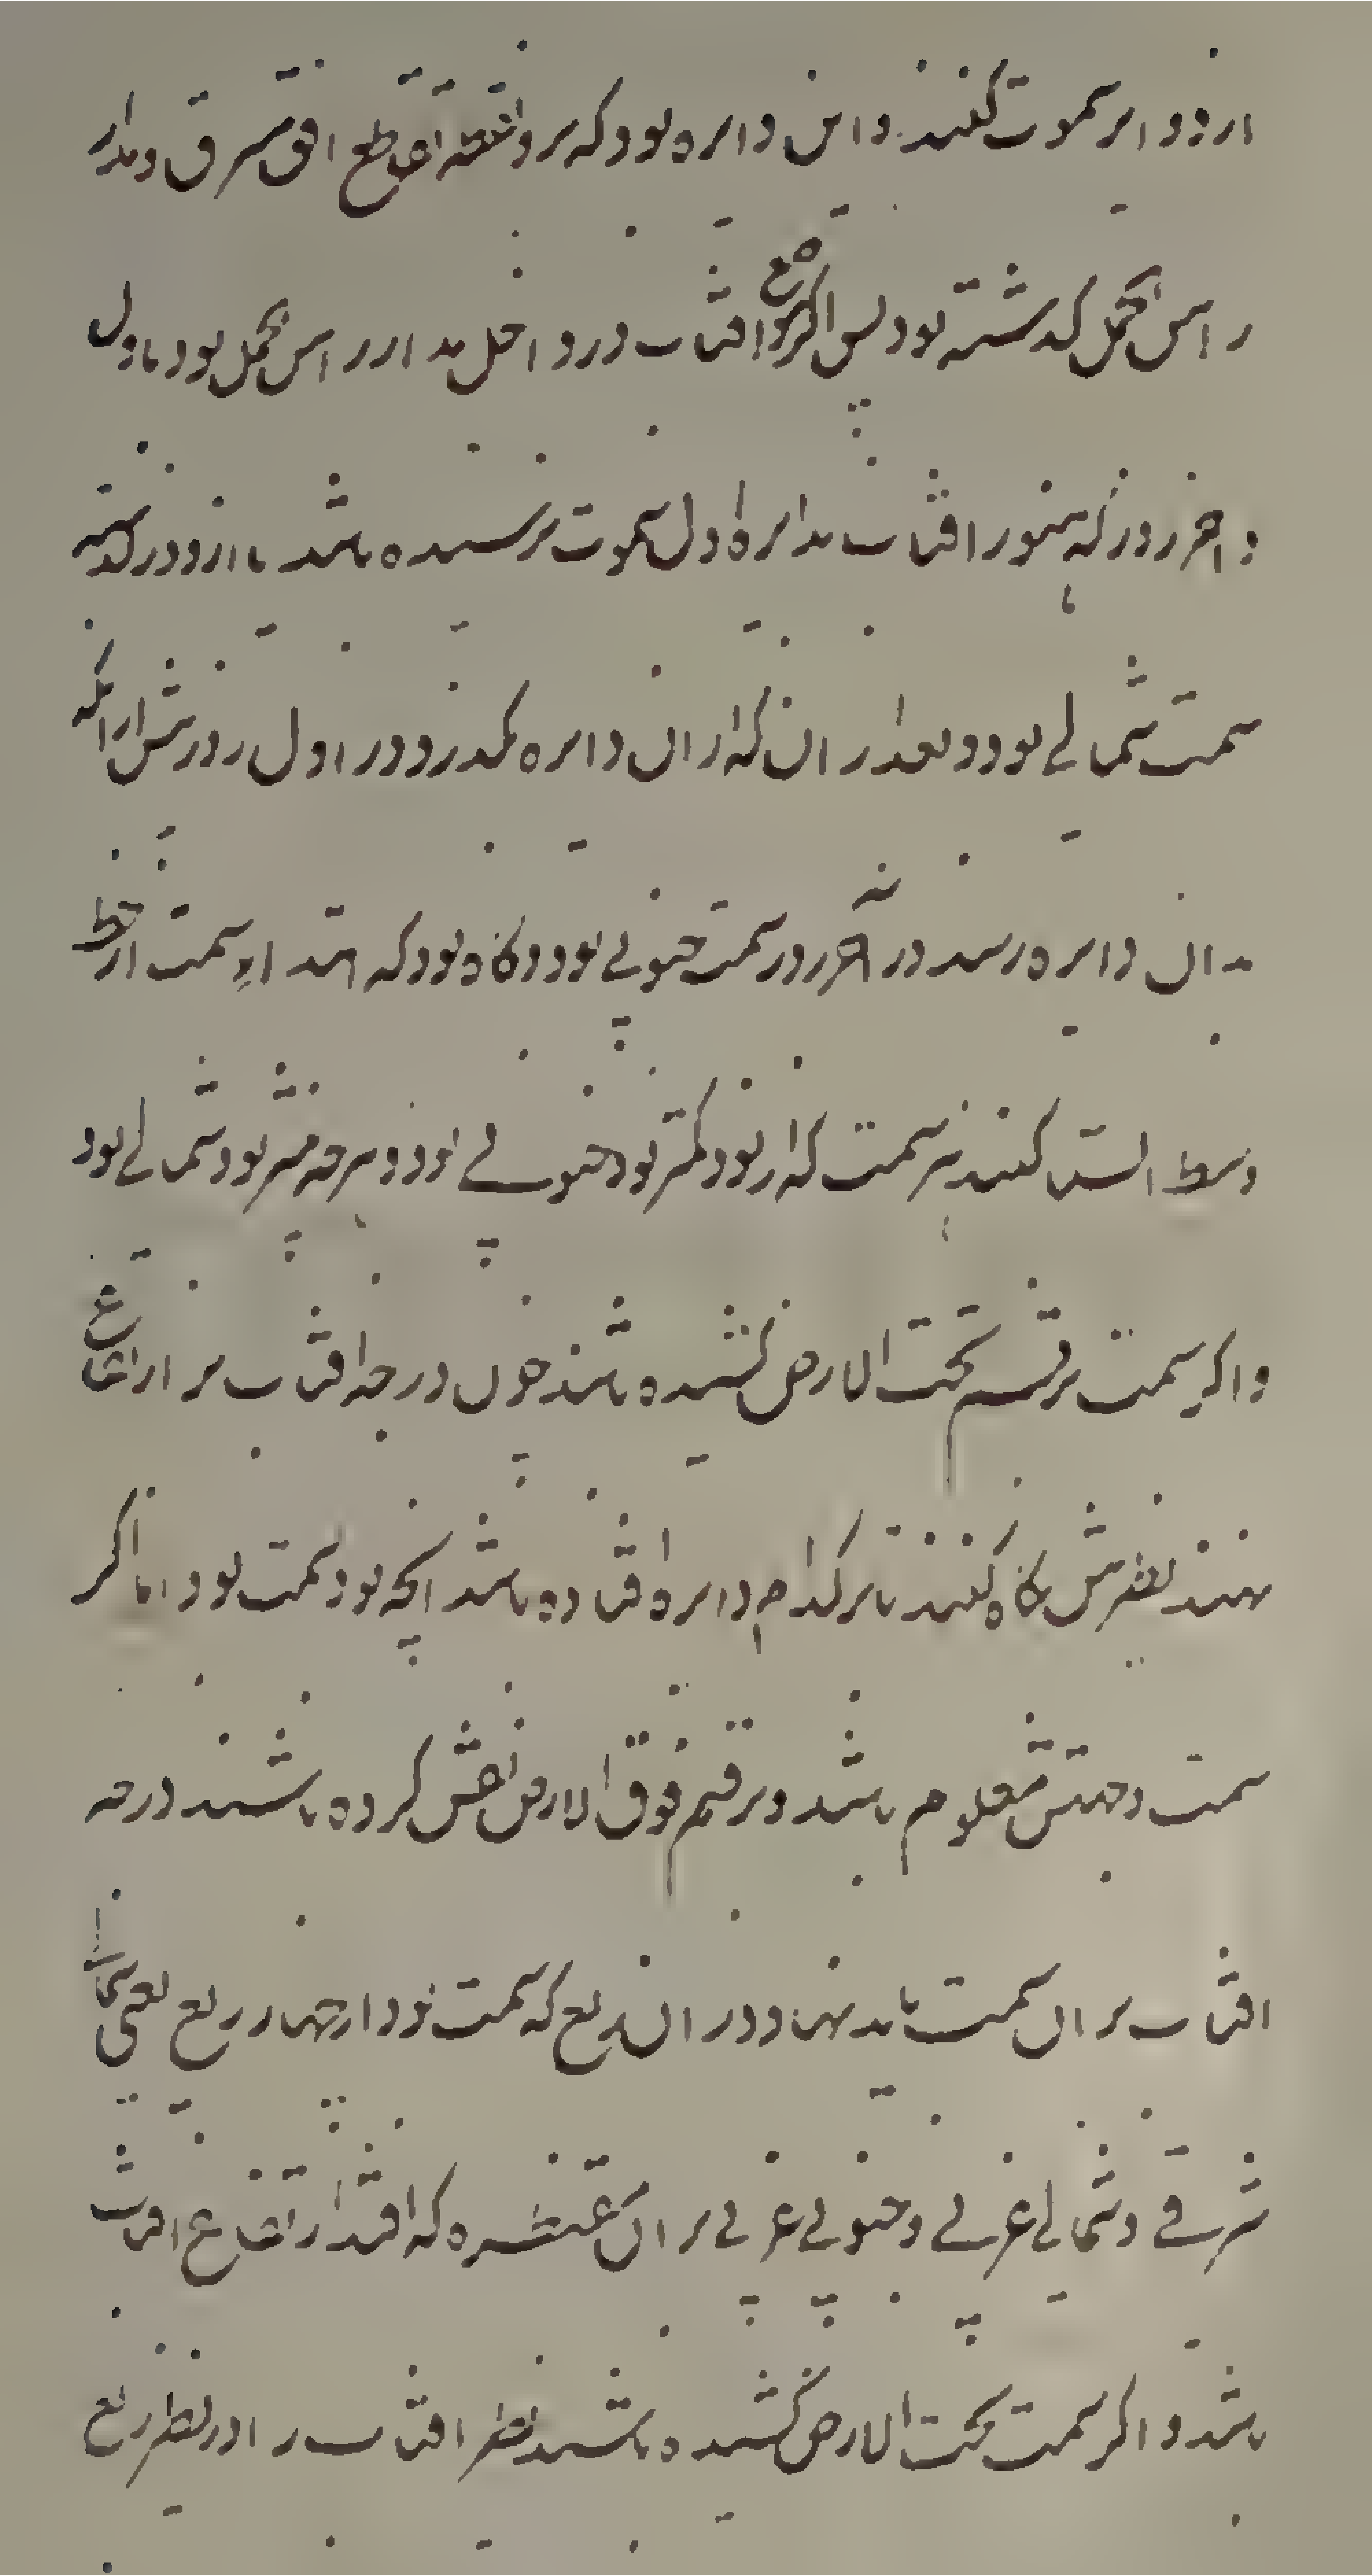 از دوایر سموت کنند و این دایره بود که بر و نقطه تقاطع افق مشرق و مدار
راس الحمل کذشته بود پس اکر موضع افتاب درو داخل مدار راس الحمل بود باول
و اخر روز که هنوز افتاب بدایره اول سموت نرسیده باشد یا ازو درکذشته
سمت شمالی بود و بعد از ان که از ان دایره بکذرد در اول روز پیش از انکه
بدان دایره رسد در آخر روز سمت جنوبی بود و کاه بود که ابتداء سمت از خط
وسط السما کنند هر سمت که از نود کمتر بود جنوبی بود و هرچه بیشتر بود شمالی بود
و اکر سمت بر قسم تحت الارض کشیده باشند چون درجه افتاب بر ارتفاع
نهند نظیرش نکاه کنند تا بر کدام دایره افتاده باشد انچه بود سمت بود اما اکر
سمت و جهتش معلوم باشد و بر قسم فوق الارض نقش کرده باشند درجه
افتاب بر ان سمت باید نهاد در ان ربع که سمت بود از چهار ربع یعنی شمالی
شرقی و شمالی غربی و جنوبی غربی بر ان مقنطره که افتد ارتفاع افتاب
باشد و اکر سمت تحت الارض کشیده باشند نظیر افتاب را در نظیر ربع